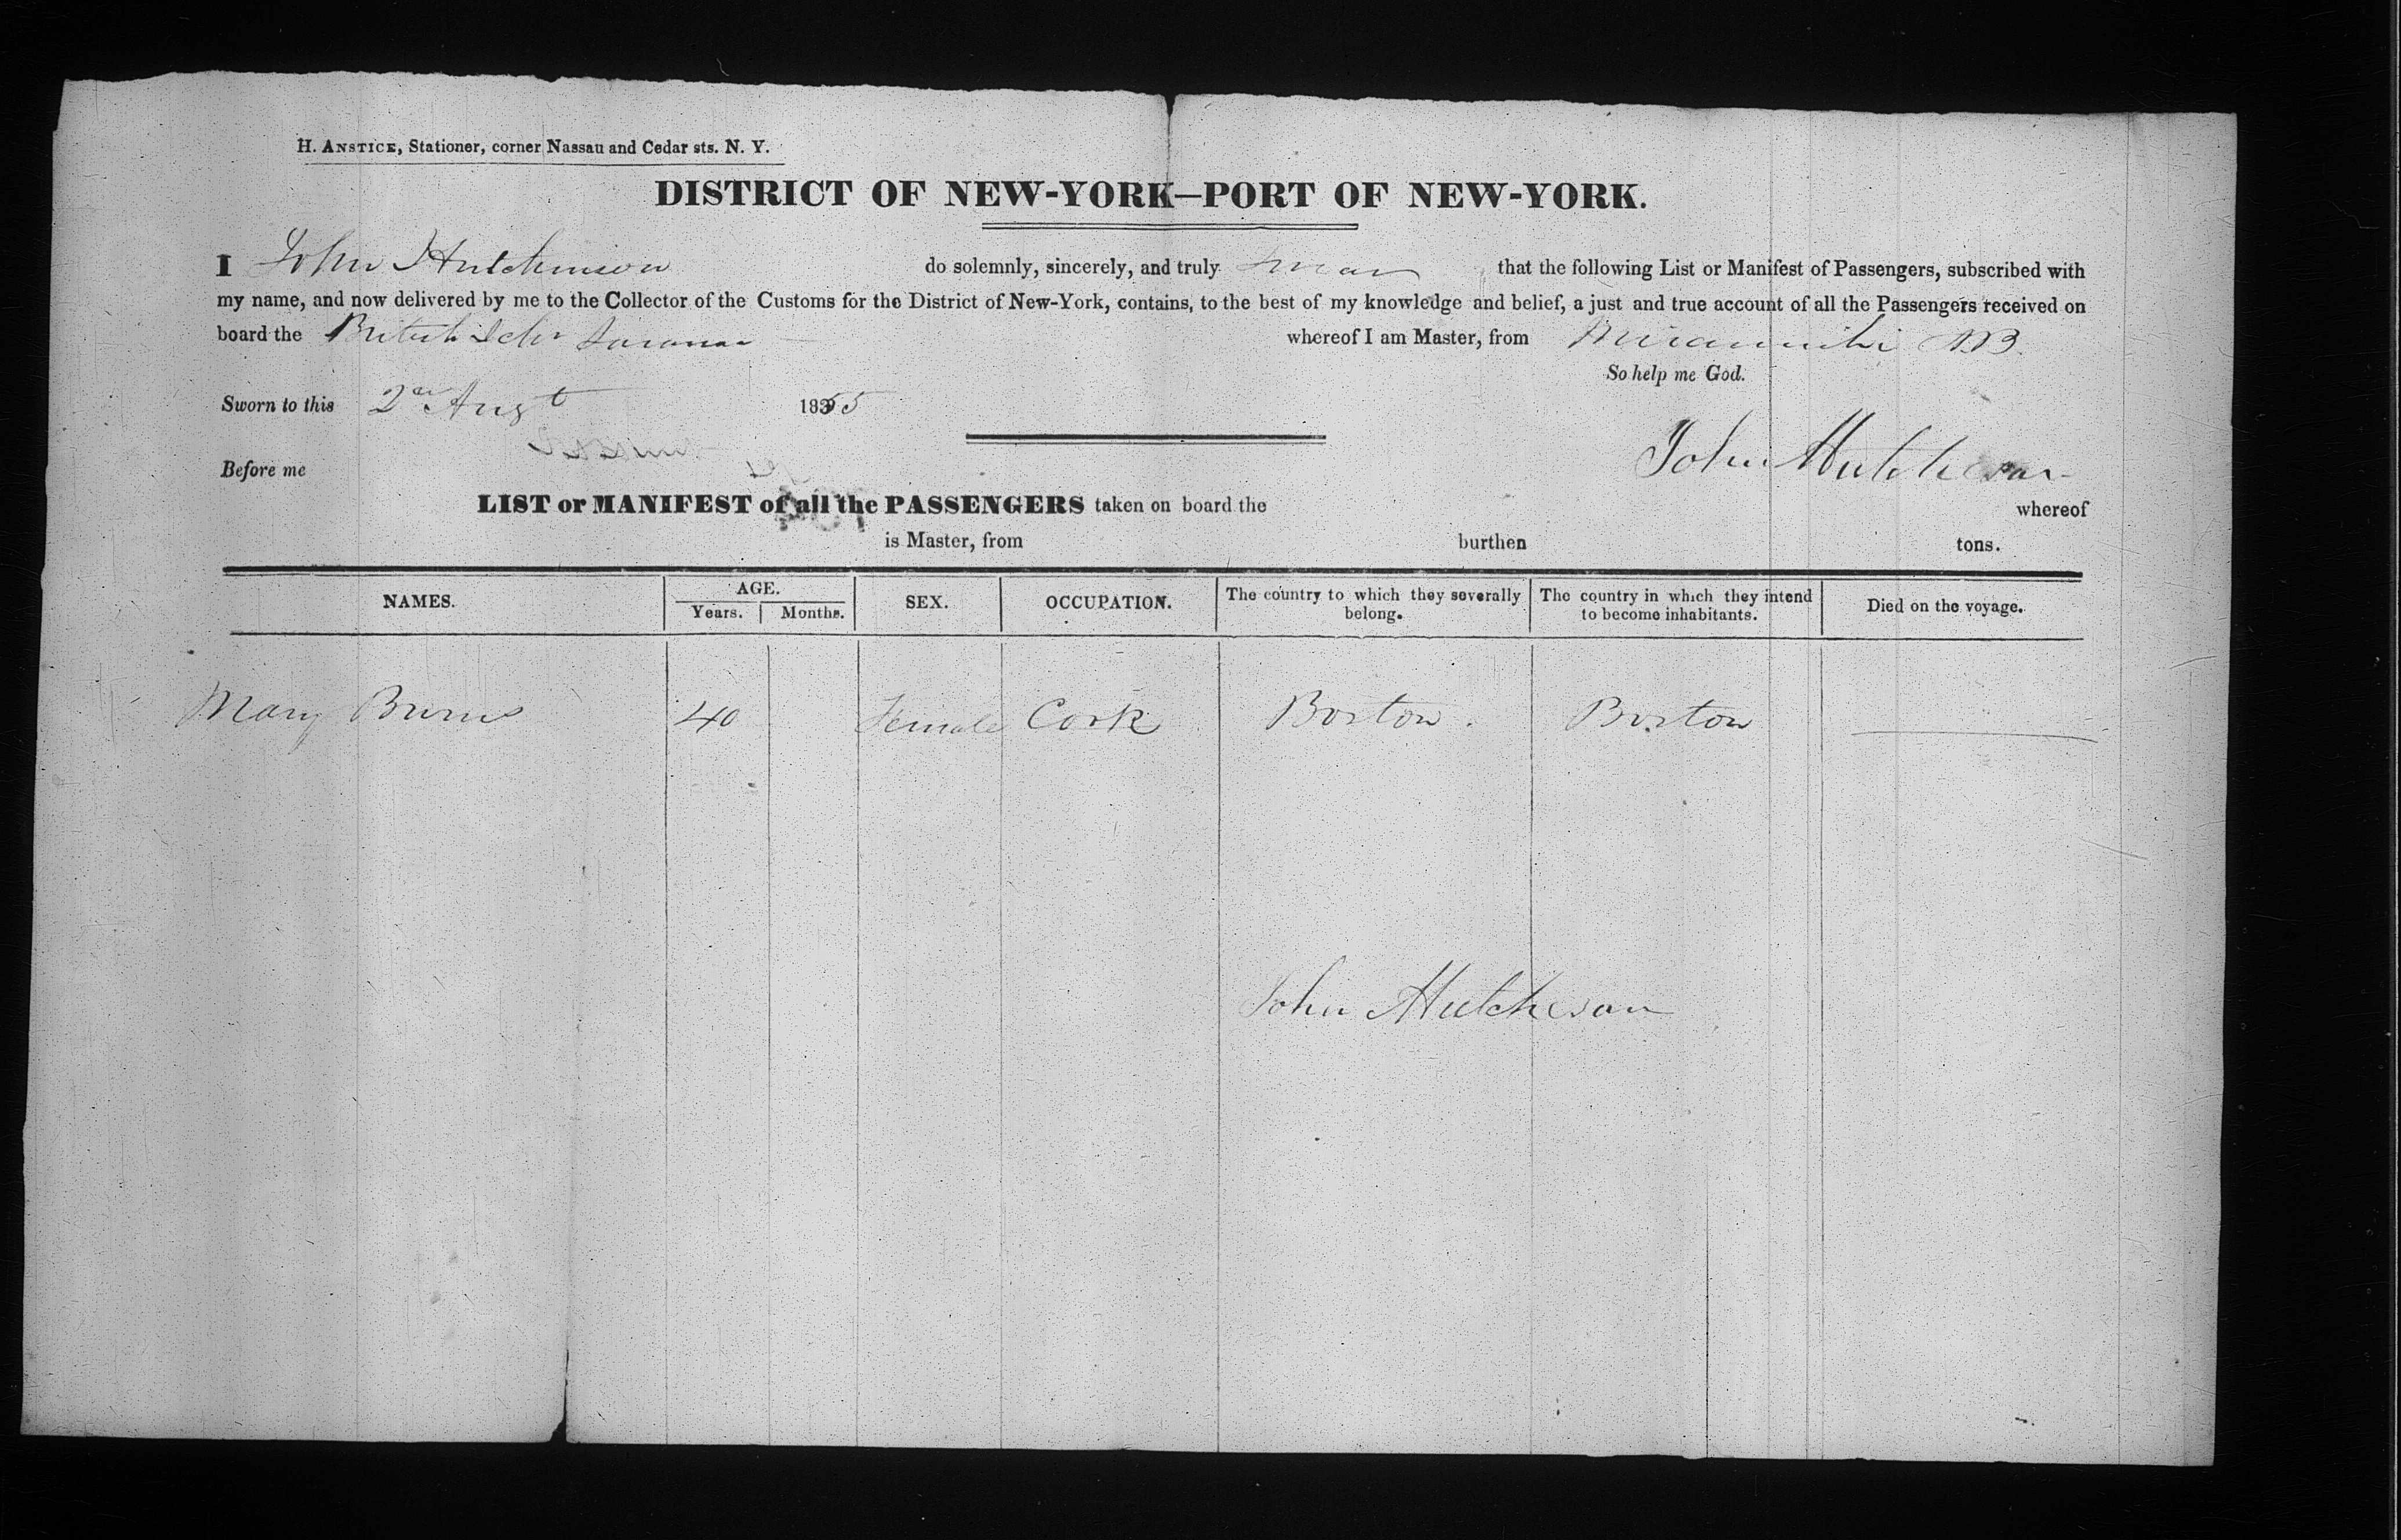 H. ANSTICE, Stationer, corner Nassau and Cedar sts. N. Y.
DISTRICT OF NEW-YORK—PORT OF NEW-YORK.
I John Hutchinson do solemnly, sincerely, and truly swear that the following List or Manifest of Passengers, subscribed with
my name, and now delivered by me to the Collector of the Customs for the District of New-York, contains, to the best of my knowledge and belief, a just and true account of all the Passengers received on
board the British Schr whereof I am Master, from Miramichi NB.
So help me God.
Sworn to this 2nd Augt 1855
John Hutcheson
Before me
LIST or MANIFEST of all the PASSENGERS taken on board the whereof
is Master, from burthen tons.
NAMES. AGE. Years. Months. SEX. OCCUPATION. The country to which they severally belong. The country in which they intend to become inhabitants. Died on the voyage.
Mary Burns 40 Female Cook Boston. Boston
John Hutcheson